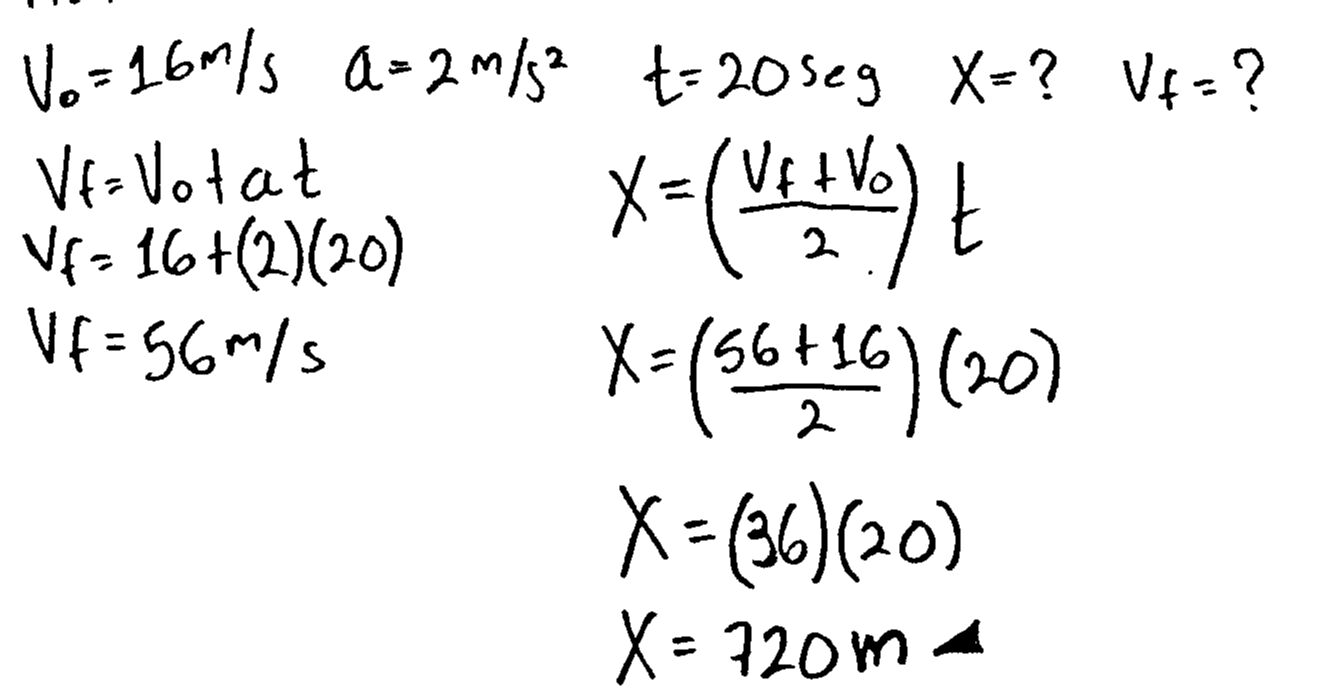 V₀=16m/s a=2m/s² t=20seg X=? Vf=?
Vf=V₀+at
Vf=16+(2)(20)
Vf=56m/s
X=((Vf+V₀)/2)t
X=((56+16)/2)(20)
X=(36)(20)
X=720m